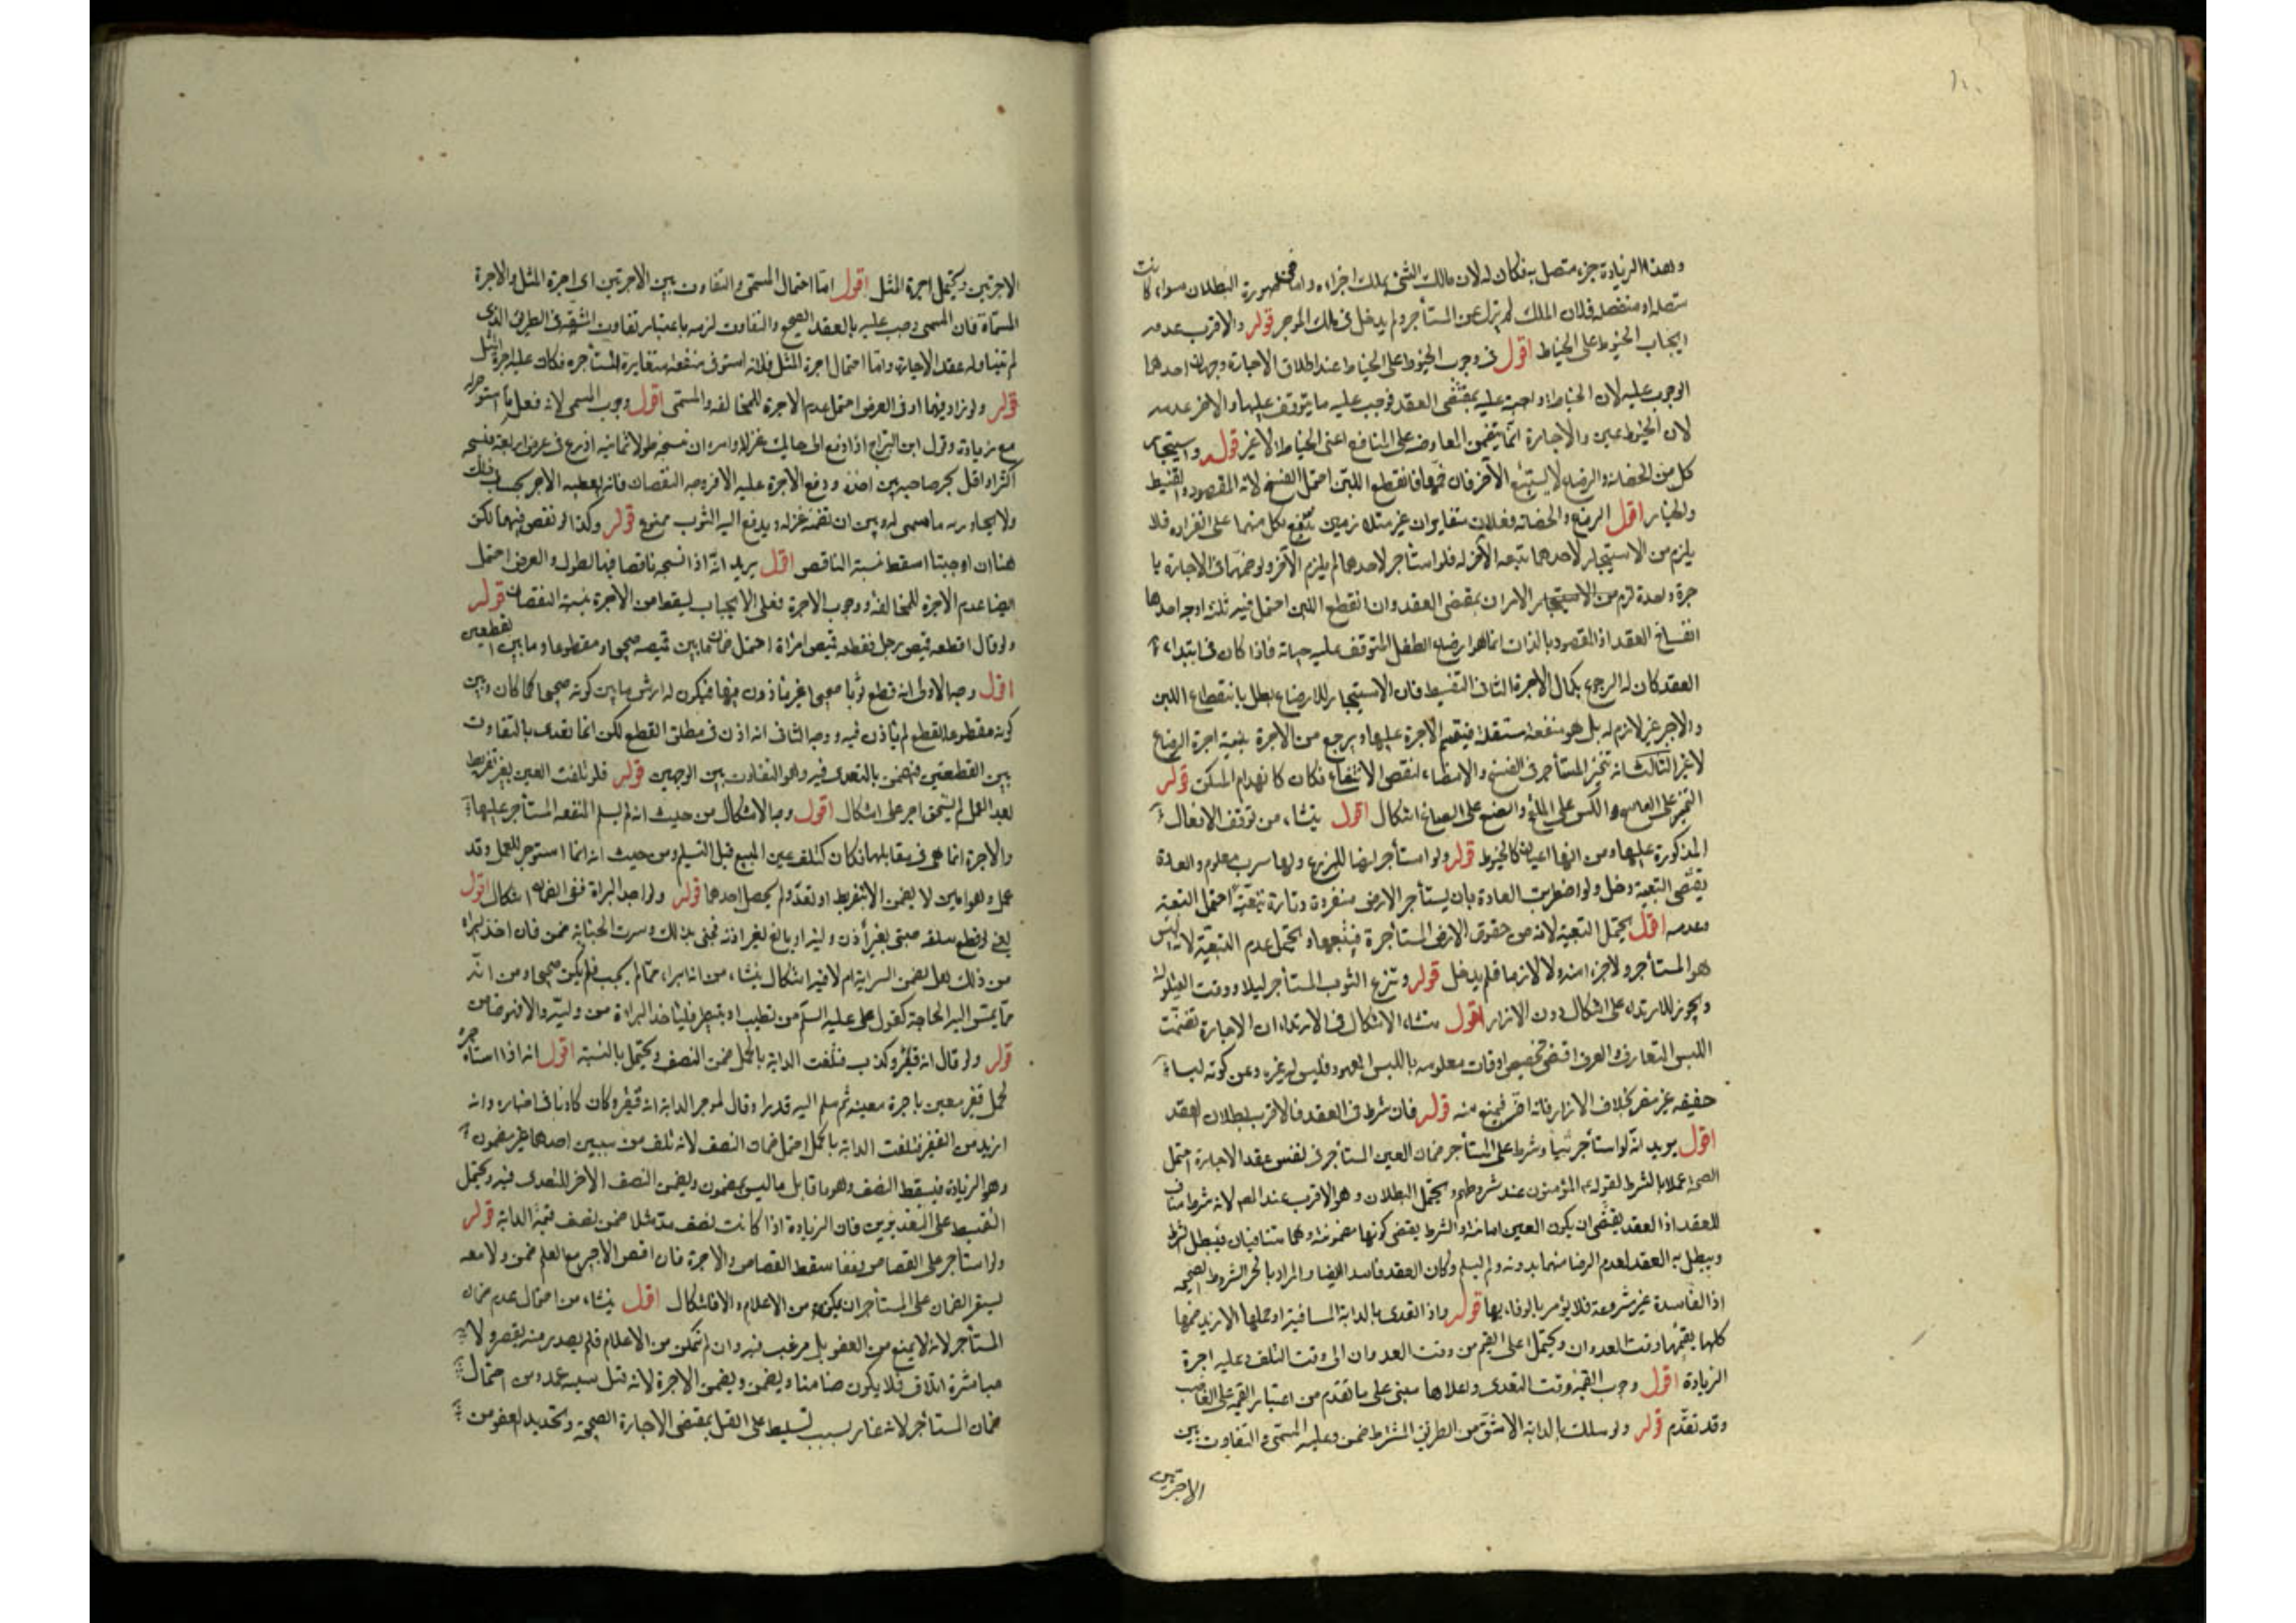 وهذه الزيادة جزء متصل به فكان له لان مالك الشئ يملك اجزاءه واما في صورة البطلان سواء كانت
متصلة او منفصلة فلان الملك لم يزل عن المستأجر ولم يدخل في ملك الموجر قوله والاقرب عدم
ايجاب الخيوط على الخياط اقول في وجوب الخيوط على الخياط عند اطلاق الاجارة وجهان احدهما
الوجوب عليه لان الخياطة واجبة عليه بمقتضى العقد فوجب عليه ما يتوقف عليها والاخر عدمه
لان الخيوط عين والاجارة انما يتضمن المعاوضة على المنافع اعنى الخياطة لا غير قوله واستيجار
كل من الحضانة والرضاع لا يستتبع الآخر فان ضمهما فانقطع اللبن احتمل الفسخ لانه المقصود والتقسيط
والخيار اقول الرضاع والحضانة فعلان متغايران غير متلازمين ينتفع بكل منهما على انفراده فلا
يلزم من الاستيجار لاحدهما تبعه الآخر له فلو استأجر لاحدهما لم يلزم الآخر ولو ضمهما في الاجارة با
جرة واحدة لزم من الاستيجار الامران بمقتضى العقد وان انقطع اللبن احتمل فيه ثلث اوجه احدها
انفساخ العقد اذ المقصود بالذات انما هو ارضاع الطفل المتوقف عليه حياته فاذا كان في ابتداء
العقد كان له الرجوع بكمال الاجرة الثاني التقسيط فان الاستيجار للارضاع بطل بانقطاع اللبن
والاجر غير لازم له بل هو منفعة مستقلة فيقسم الاجرة عليها ويرجع من الاجرة بنسبة اجرة الرضاع
لا غير الثالث انه تخير المستأجر في الفسخ والامضاء لنقص الانتفاع فكان كانهدام المسكن قوله
الحبر على الناسخ والكس على الملقح والصبغ على الصباغ اشكال اقول ينشاء من توقف الافعال
المذكورة عليها ومن انها اعيان كالخيوط قوله ولو استأجر ارضا للزرع ولها شرب معلوم والعادة
يقتضي التبعية دخل ولو اضطربت العادة بان يستأجر الارض منفردة وتارة تبعيّة احتمل التبعية
وعدمه اقول يحتمل التبعية لانه من حقوق الارض المستأجرة فيتبعها ويحتمل عدم التبعية لانه ليس
هو المستأجر ولا جزء منه ولا لازما فلم يدخل قوله وينزع الثوب المستأجر ليلا ووقت القيلولة
ويجوز الارتداء على اشكال دون الاتزار اقول منشاء الاشكال في الارتداء ان الاجارة تضمنت
اللبس المتعارف والعرف اقتضى تخصيص اوقات معلومة باللبس المعهود فليس له غيره وعن كونه لبسا
حقيقة غير مضر بخلاف الاتزار فانه اضر فيمنع منه قوله فان شرط في العقد فالاقرب بطلان العقد
اقول يريد انه لو استأجر شيئا وشرط على المستأجر ضمان العين المستأجرة في نفس عقد الاجارة احتمل
الصحة عملا بالشرط لقوله المؤمنون عند شروطهم ويحتمل البطلان وهو الاقرب عند المص لانه شرط مناف
للعقد اذ العقد يقتضي ان يكون العين امانة والشرط يقتضي كونها مضمونة وهما متنافيان فيبطل الشرط
ويبطل به العقد لعدم الرضا منهما بدونه ولم يسلم وكان العقد فاسدا ايضا والمراد بالخبر الشروط الصحيحة
اذ الفاسدة غير مشروعة فلا يؤمر بالوفاء بها قوله واذا تعدى بالدابة المسافة او حملها الازيد ضمنها
كلها بقيمتها وقت العدوان ويحتمل اعلى القيم من وقت العدوان الى وقت التلف وعليه اجرة
الزيادة اقول وجوب القيمة وقت التعدى واعلاها مبنى على ما تقدم من اعتبار القيمة على الغاصب
وقد تقدم قوله ولو سلك بالدابة الاشق من الطريق المشترط ضمن وعليه المسمى والتفاوت بين
الاجرتين
الاجرتين ويحتمل اجرة المثل اقول اما احتمال المسمى والتفاوت بين الاجرتين اى اجرة المثل والاجرة
المسماة فان المسمى وجب عليه بالعقد الصحيح والتفاوت لزمه باعتبار تفاوت المشقة في الطريق الذى
لم يتناوله عقد الاجارة واما احتمال اجرة المثل فلانه استوفى منفعة متغايرة للمستأجرة فكان عليه اجرة المثل
قوله ولو زاد فيهما او في العرض احتمل عدم الاجرة للمخالفة والمسمى اقول وجوب المسمى لانه فعل ما استوجر له
مع زيادة وقول ابن البراج اذا دفع الى حايك غزلا وامره ان ينسجه طولا ثمانية اذرع في عرض اربعة فنسجه
اكثر او اقل يجر صاحبه بين اخذه ودفع الاجرة عليه الا في وجه النقصان فانه يعطيه الاجر بحساب ذلك
ولا يجاوز به ما سمى له وبين ان يضمنه غزله ويدفع اليه الثوب ممنوع قوله وكذا لو نقص فيهما لكن
هنا ان اوجبنا اسقط نسبة الناقص اقول يريد انه اذا نسجه ناقصا في الطول والعرض احتمل
ايضا عدم الاجرة للمخالفة ووجوب الاجرة فعلى الايجاب يسقط من الاجرة بنسبة النقصان قوله
ولو قال اقطعه قميص رجل فقطعه قميص امراة احتمل ضمان ما بين قميصه صحيحا ومقطوعا وما بين القطعين
اقول وجه الاول انه قطع ثوبا صحيحا غير ماذون فيها فيكون له ارش ما بين كونه صحيحا كما كان وبين
كونه مقطوعا لقطع لم ياذن فيه ووجه الثاني انه اذن في مطلق القطع لكن انما تعدى بالتفاوت
بين القطعتين فيضمن بالتعدى فيه وهو التفاوت بين الوجهين قوله فلو تلفت العين بغير تفريط
بعد العمل لم يستحق اجر على اشكال اقول وجه الاشكال من حيث انه لم يسلم المنفعة المستأجر عليها
والاجرة انما هى في مقابلها فكان كتلف عين المبيع قبل التسليم ومن حيث انه انما استوجر للعمل وقد
عمل وهو امين لا يضمن الا بتفريط او تعد ولم يحصل احدهما قوله ولو اخذ البراة ففى الضمان اشكال اقول
يعنى لو قطع سلعة صبى بغير اذن وليه او بالغ بغير اذنه فجنى بذلك وسرت الجناية ضمن فان اخذ البراة
من ذلك هل يضمن السراية ام لا فيه اشكال ينشاء من انه ابراء مما لم يجب فلم يكن صحيحا ومن انه
مما يمس اليه الحاجة كقول على عليه السلم من تطبب او تبيطر فليأخذ البراءة من وليه والا فهو ضامن
قوله ولو قال انه قفيز وكذب فتلفت الدابة بالحمل ضمن النصف ويحتمل بالنسبة اقول انه اذا استأجره
لحمل قفيز معين باجرة معينة ثم سلم اليه قدرا وقال لموجر الدابة انه قفيز وكان كاذبا في اخباره وانه
ازيد من القفيز فتلفت الدابة بالحمل احتمل ضمان النصف لانه تلف من سببين احدهما غير مضمون
وهو الزيادة فيسقط النصف وهو ما قابل ما ليس بمضمون ويضمن النصف الاخر للتعدى فيه ويحتمل
التقسيط على القفيزين فان الزيادة اذا كانت نصف مد مثلا ضمن نصف قيمة الدابة قوله
ولو استأجر على القصاص فعفا سقط القصاص والاجرة فان اقتص الاجير مع العلم ضمن ولا معه
يستقر الضمان على المستأجر ان يمكنه من الاعلام والا فاشكال اقول ينشاء من احتمال عدم ضمان
المستأجر لانه لا يمنع من العفو بل مرغب فيه وان لم يتمكن من الاعلام فلم يصدر منه تقصير ولا
مباشرة اتلاف فلا يكون ضامنا ويضمن ويضمن الاجرة لانه قتل سببه عمد ومن احتمال
ضمان المستأجر لانه غار بسبب تسليط على القتل بمقتضى الاجارة الصحيحة وتجديد العفو من